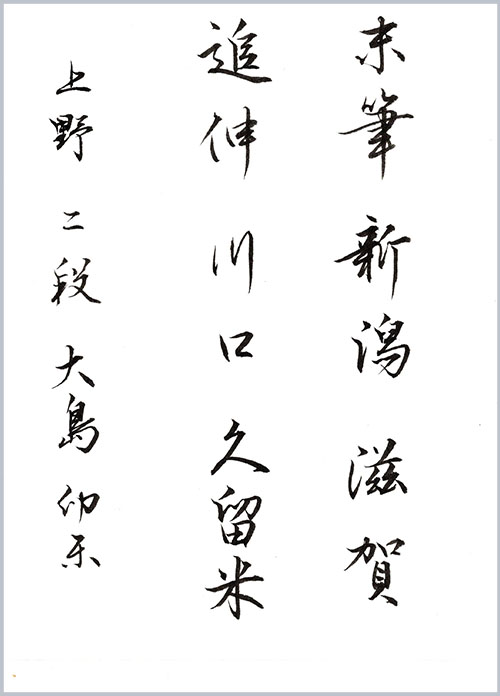 末筆 新潟 滋賀
追伸 川口 久留米
上野 二段 大島